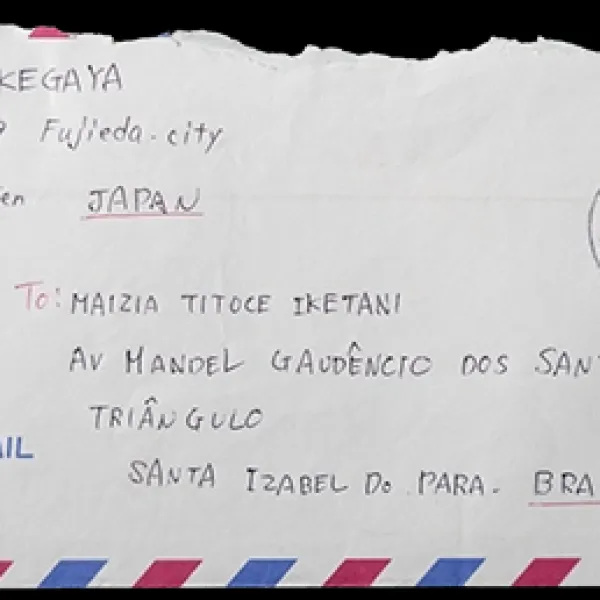 KEGAYA
Fujieda-city
en JAPAN
To: MAIZIA TITOCE IKETANI
AV MANOEL GAUDÊNCIO DOS SAN
TRIÂNGULO
AIL
SANTA IZABEL DO PARA. BRA